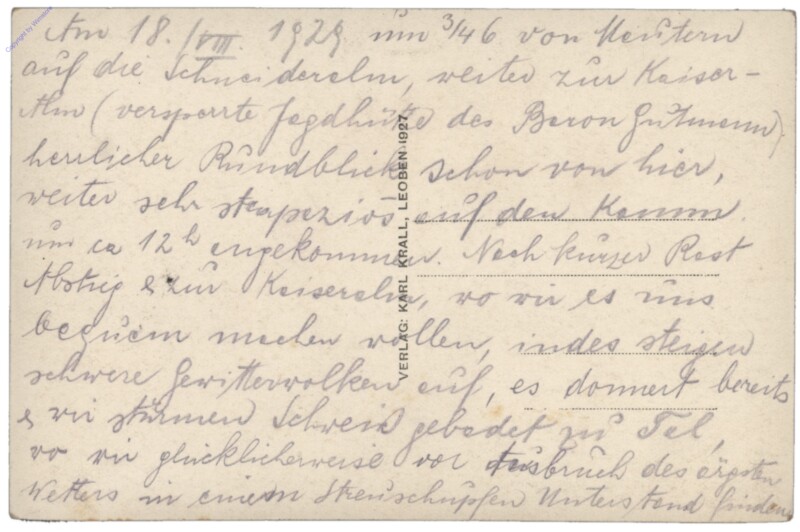 Am 18./VIII. 1929 um 3/46 von Mautern
auf die Schneideralm, weiter zur Kaiser-
Alm (versperrte Jagdhütte des Baron Gutmann)
herrlicher Rundblick schon von hier,
weiter sehr strapeziös auf den Kamm.
um ca 12h angekommen. Nach kurzer Rast
Abstieg & zur Kaiseralm, wo wir es uns
bequem machen wollen, indes steigen
schwere Gewitterwolken auf, es donnert bereits
& wir stürmen Schweiß gebadet zu Tal,
wo wir glücklicherweise vor Ausbruch des ärgsten
Wetters in einem Streuschupfen Unterstand finden
VERLAG: KARL KRALL, LEOBEN 1927